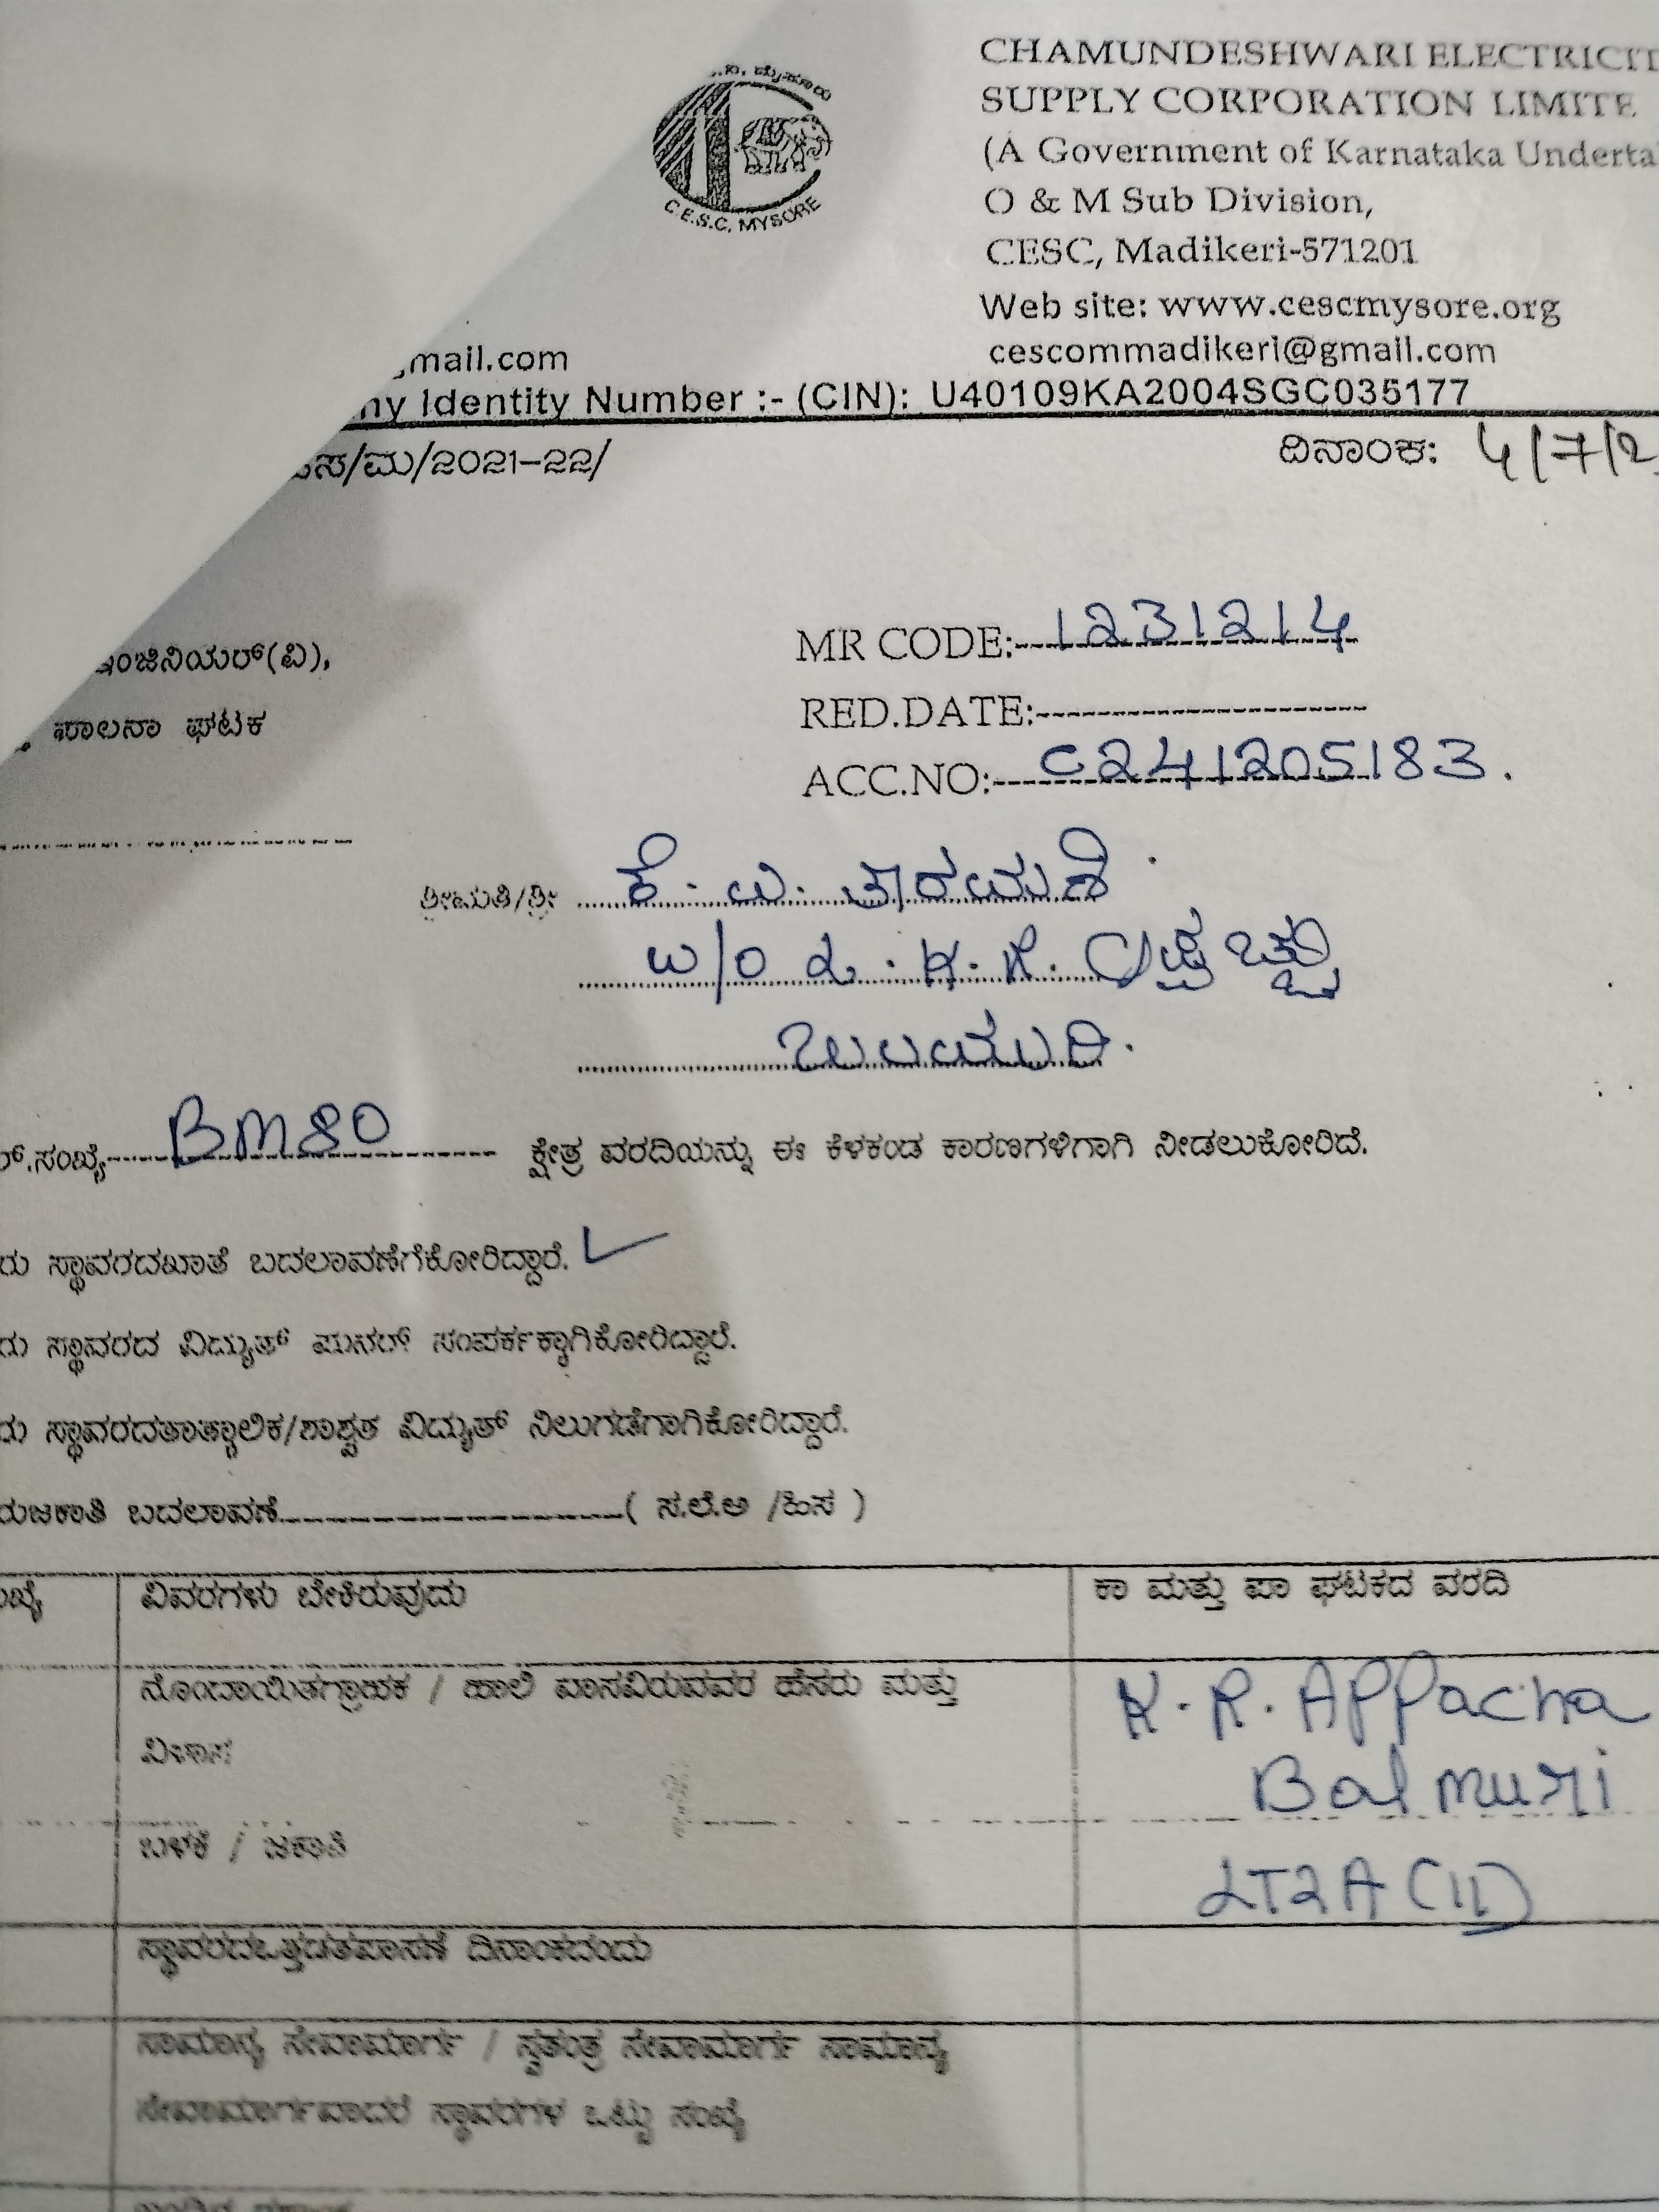 CHAMUNDESHWARI ELECTRICIT
SUPPLY CORPORATION LIMITE
(A Government of Karnataka Underta
O & M Sub Division,
CESC, Madikeri-571201
Web site: www.cescmysore.org
cescommadikeri@gmail.com
C.E.S.C, MYSORE
mail.com
ny Identity Number :- (CIN): U40109KA2004SGC035177
ಸ/ಮ/೨೦೨೧-೨೨/ ದಿನಾಂಕ: 4/7/2
MR CODE:- 1231214
ಇಂಜಿನಿಯರ್(ವಿ),
RED.DATE:-
ಪಾಲನಾ ಘಟಕ
ACC.NO:- C241205183.
ಶ್ರೀಮತಿ/ಶ್ರೀ ಕೆ. ಎ.
w/o ಲೇ. ಕೆ. ಆರ್.
ಬಲಮುರಿ.
ರ್.ಸಂಖ್ಯೆ BM80 ಕ್ಷೇತ್ರ ವರದಿಯನ್ನು ಈ ಕೆಳಕಂಡ ಕಾರಣಗಳಿಗಾಗಿ ನೀಡಲುಕೋರಿದೆ.
ರು ಸ್ಥಾವರದಖಾತೆ ಬದಲಾವಣೆಗೆಕೋರಿದ್ದಾರೆ. ✓
ರು ಸ್ಥಾವರದ ವಿದ್ಯುತ್ ಮನರ್ ಸಂಪರ್ಕಕ್ಕಾಗಿಕೋರಿದ್ದಾರೆ.
ರು ಸ್ಥಾವರದತಾತ್ಕಾಲಿಕ/ಶಾಶ್ವತ ವಿದ್ಯುತ್ ನಿಲುಗಡೆಗಾಗಿಕೋರಿದ್ದಾರೆ.
ರುಜಕಾತಿ ಬದಲಾವಣೆ ( ಸ.ಲೆ.ಅ /ಹಿಸ )
ಖ್ಯೆ ವಿವರಗಳು ಬೇಕಿರುವುದು ಕಾ ಮತ್ತು ಪಾ ಘಟಕದ ವರದಿ
ನೊಂದಾಯಿತಗ್ರಾಹಕ / ಹಾಲಿ ವಾಸವಿರುವವರ ಹೆಸರು ಮತ್ತು K.R.APPacha
ವಿಳಾಸ Balmuri
ಬಳಕೆ / ಜಕಾತಿ LT2A(II)
ಸ್ಥಾವರದಒತ್ತಡತಪಾಸಣೆ ದಿನಾಂಕದಂದು
ಸಾಮಾನ್ಯ ಸೇವಾಮಾರ್ಗ / ಸ್ವತಂತ್ರ ಸೇವಾಮಾರ್ಗ ಸಾಮಾನ್ಯ
ಸೇವಾಮಾರ್ಗವಾದರೆ ಸ್ಥಾವರಗಳ ಒಟ್ಟು ಸಂಖ್ಯೆ